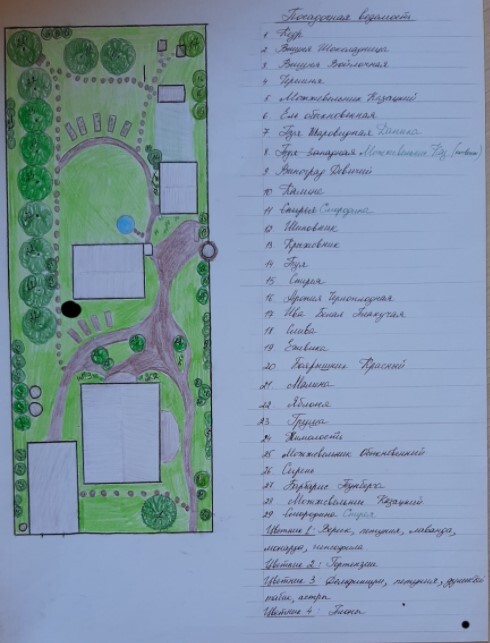 Посадочная ведомость
1 Кедр
2 Вишня Шоколадница
3 Вишня Войлочная
4 Черешня
5 Можжевельник Казацкий
6 Ель обыкновенная
7 Туя Шаровидная Даника
8 Туя Западная Можжевельник Каз
9 Виноград Девичий
10 Калина
11 Спирея Смородина
12 Шиповник
13 Крыжовник
14 Туя
15 Спирея
16 Арония Черноплодная
17 Ива Белая Плакучая
18 Слива
19 Ежевика
20 Боярышник Красный
21 Малина
22 Яблоня
23 Груша
24 Жимолость
25 Можжевельник Обыкновенный
26 Сирень
27 Барбарис Тунберга
28 Можжевельник Казацкий
29 Смородина Спирея
Цветник 1: Вереск, петуния, лаванда,
монарда, гипсофила
Цветник 2: Гортензии
Цветник 3 петуния, душистый
табак, астры
Цветник 4: Пионы